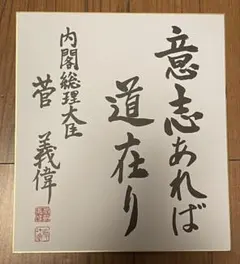 意志あれば
道在り
内閣総理大臣
菅 義偉